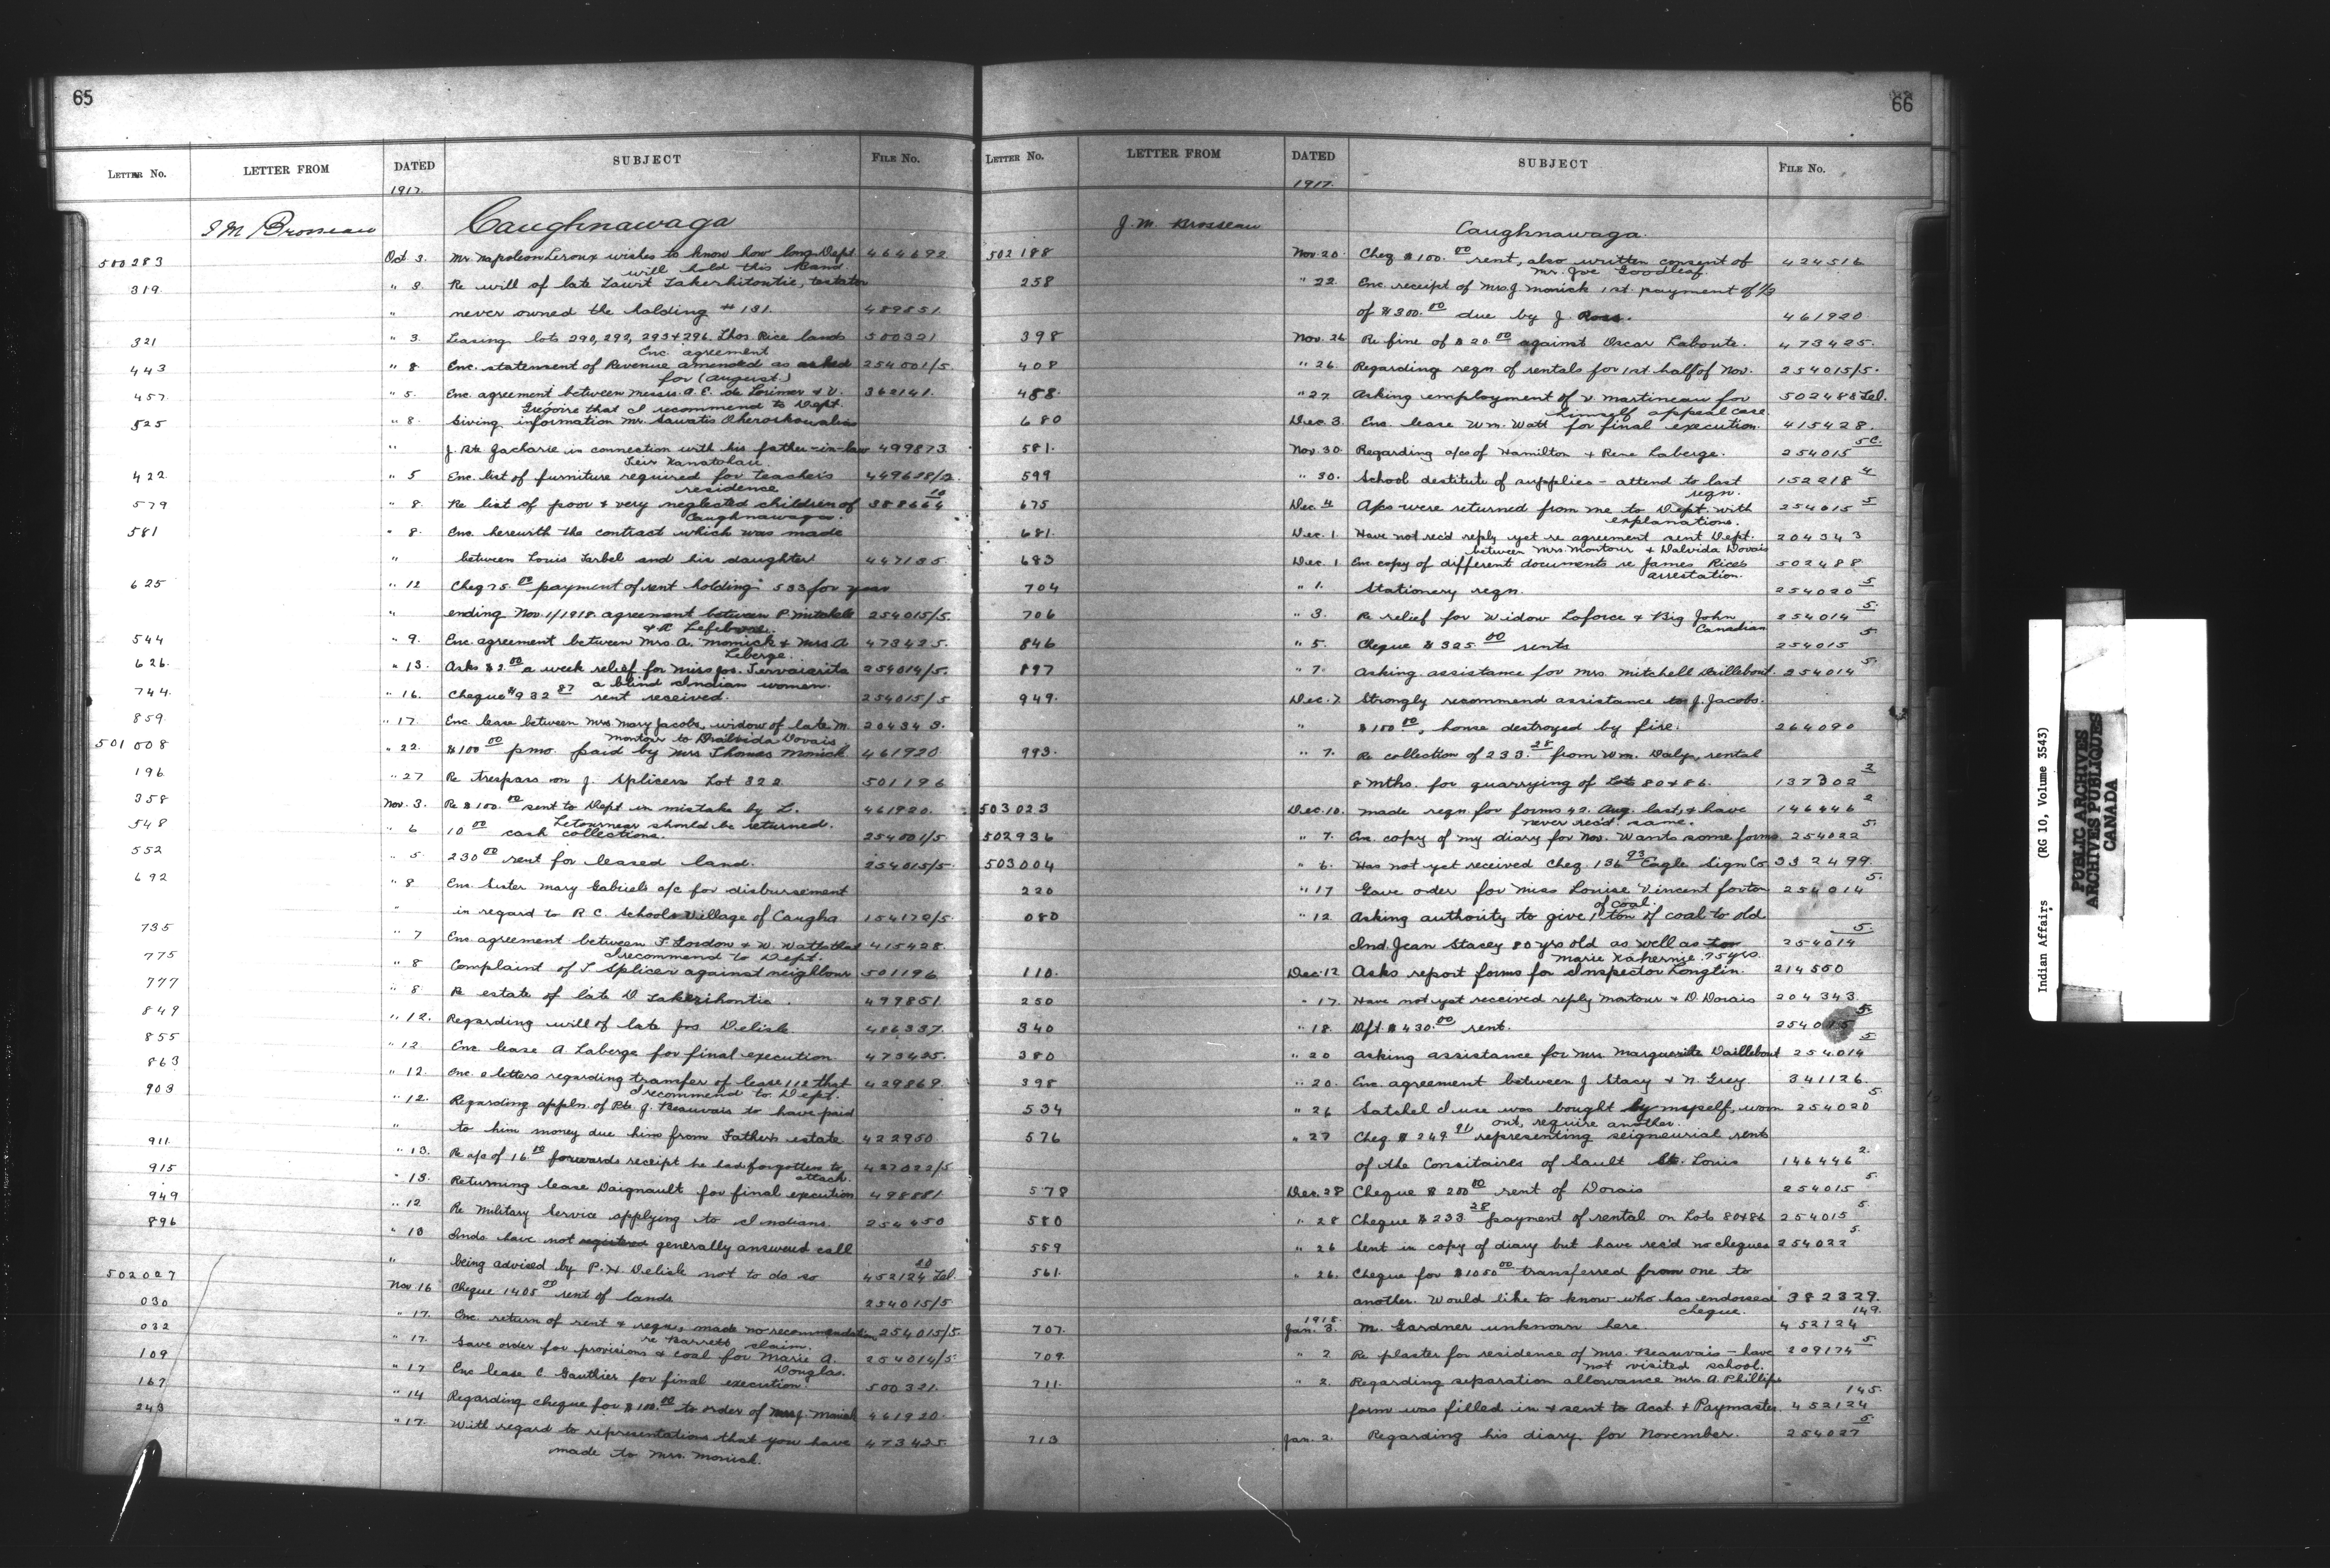 65
LETTER NO. LETTER FROM DATED SUBJECT FILE No.
1917.
J M Brosseau Caughnawaga
500283 Oct 3. Mr. Napoleon Leroux wishes to know how long Dept 464692
will hold this Land
319 " 3. Re will of late Lawit Lakerhitontie, testator
" never owned the holding # 131. 489851
321 " 3. Leasing lots 290, 292, 293 & 296. Thos. Rice lands 500321
Enc. agreement
443 " 8 Enc. statement of Revenue amended as asked 254001/5.
for (August.)
457 " 5. Enc. agreement between messrs. A. E. de Lorimer & V. 362141.
Grégoire that I recommend to Dept.
525 " 8. Giving information Mr. Sawatis
" J. Bte Jacharie in connection with his father-in-law 499873
422 " 5 Enc. list of furniture required for teacher's 449628/2.
residence
579 " 8. Re list of poor & very neglected children of 388664 10
Caughnawaga.
581 " 8. Enc. herewith the contract which was made
" between Louis Jarbel and his daughter 447135
625 " 12 Cheq 75.00 payment of rent holding 533 for year
" ending Nov. 1/1918. agreement between P. Mitchell 254015/5.
& A Lefebvre.
544 " 9. Enc. agreement between Mrs A. Monick & Mrs A 473425.
Leberge.
626. " 13. Asks $2.00 a week relief for Miss Jos. 254014/5.
a blind Indian women.
744. " 16. Cheque $932 87 rent received. 254015/5
859. " 17 Enc. lease between Mrs Mary Jacobs, widow of late M. 204343.
Montour to Dalvida Dovais
501008 " 22. $100 00 pmo. paid by Mrs Thomas Monick 461920
196 " 27 Re trespass on J. Splicers Lot 322 501196
358 Nov. 3. Re $100.00 sent to Dept in mistake by L. 461920.
Letourneau should be returned.
548 " 6 10 00 cash collections. 254001/5
552 " 5. 230 00 rent for leased land. 254015/5
692 " 8 Enc. Sister Mary Gabriel's a/c for disbursement
" in regard to R C. Schools Village of Caugha. 154172/5
735 " 7 Enc. agreement between F. Gordon & W. Watts that 415428.
I recommend to Dept.
775 " 8 Complaint of J Splicer against neighbour 501196
777 " 8 Re estate of late D Lakerihontie. 499851.
849 " 12. Regarding will of late Jos Delisle 486337.
855 " 12 Enc lease A. Laberge for final execution 473425.
863 " 12. Enc. 2 letters regarding transfer of lease 112 that 429869.
I recommend to Dept.
903 " 12. Regarding appln. of Pte. J. Beauvais to have paid
" to him money due him from Father's estate 422950.
911. " 13. Re a/c of 16.00 forwards receipt he had forgotten to 427022/5
attach.
915 " 13. Returning lease Daignault for final execution 498881.
949 " 12 Re Military Service applying to Indians. 254450
896 " 13 Inds. have not registered generally answered call
" being advised by P. H Delisle not to do so 452124 10 Lel.
502027 Nov. 16 Cheque 1405 00 rent of lands 254015/5
030 " 17. Enc. return of rent & reqn., made no recommendation 254015/5.
re Barrett claim.
032 " 17. Gave order for provisions & coal for Marie A. 254014/5
Douglas.
109 " 17 Enc lease C. Gauthier for final execution. 500321.
167 " 14 Regarding cheque for $100.00 to order of Mrs J. Monick 461920.
243 " 17. With regard to representations that you have 473425
made to Mrs. Monick.
66
LETTER No. LETTER FROM DATED SUBJECT FILE No.
1917.
J. M. Brosseau Caughnawaga.
502188 Nov. 20 Cheq $100.00 rent, also written consent of 424516
Mr. Joe Goodleaf
258 " 22 Enc. receipt of Mrs J Monick 1st. payment of 1/3
of $300.00 due by J. Ross. 461920.
398 Nov. 26 Re fine of $20.00 against Oscar Laboute. 473425.
408 " 26. Regarding reqn of rentals for 1st half of Nov. 254015/5.
488. " 27 Asking employment of V Martineau for 502488 Lel.
himself appeal case
680 Dec. 3. Enc. lease Wm. Watt for final execution. 415428.
581. Nov. 30 Regarding a/cs of Hamilton & Rene Laberge. 254015 5C.
599 " 30. School destitute of supplies - attend to last 152218 4
reqn.
675 Dec. 4 A/cs were returned from me to Dept. with 254015 5
explanations.
681. Dec. 1 Have not rec'd reply yet re agreement sent Dept. 204343
between Mrs. Montour & Dalvida Dovais
683 Dec. 1 Enc copy of different documents re James Rice's 502488
arrestation.
704 " 1. Stationery reqn. 254020 5
706 " 3. Re relief for Widow Laforce & Big John 254014 5.
Canadian
846 " 5. Cheque $325.00 rents 254015 5.
897 " 7. Asking assistance for Mrs. Mitchell Daillebout. 254014 5.
949. Dec. 7. Strongly recommend assistance to J. Jacobs.
" $100 00, house destroyed by fire. 264090
993. " 7. Re collection of 233.28 from Wm. Daly, rental
8 mths. for quarrying of Lots 80 & 86. 137302 2
503023 Dec. 10. Made reqn for forms 42. Aug. last, & have 146446 2
never rec'd same.
502936 " 7. Enc. copy of my diary for Nov. Wants some forms 254022 5.
503004 " 6. Has not yet received Cheq. 136 93 Eagle Sign Co. 332499.
220 " 17 Gave order for Miss Louise Vincent for ton 254014 5.
of coal.
080 " 12 Asking authority to give 1 ton of coal to old
Ind. Jean Stacey 80 yrs old as well as 254014 5.
Marie Kahernie. 75 yrs.
110. Dec. 12 Asks report forms for Inspector Longtin. 214550
250 " 17. Have not yet received reply Montour & D. Dovais 204343.
340 " 18. Dft. $430.00 rent. 254015 5.
380 " 20 Asking assistance for Mrs Marguerite Daillebout 254014 5
398 " 20. Enc. agreement between J. Stacy & N. Grey 341126.
534 " 26 Satchel I use was bought by myself, worn 254020 5.
out, require another.
576 " 27 Cheq $249 91 representing seigneurial rent
of the Consitaires of Sault St. Louis 146446 2.
578 Dec. 28 Cheque $200 00 rent of Dovais 254015 5.
580 " 28 Cheque $233 28 payment of rental on Lots 80 & 86 254015 5
559 " 26 Sent in copy of diary but have rec'd no cheques 254022 5.
561. " 26. Cheque for $1050 00 transferred from one to
another. Would like to know who has endorsed 382329.
cheque.
707. 1918. Jan. 3. M. Gardner unknown here. 452124 149.
709. " 2 Re plaster for residence of Mrs. Beauvais - have 209174 5
not visited school.
711. " 2. Regarding separation allowance Mrs A. Phillips
form was filled in & sent to Acct. & Paymaster. 452124 145.
713 Jan. 2. Regarding his diary for November. 254027 5.
Indian Affairs (RG 10, Volume 3543)
PUBLIC ARCHIVES
ARCHIVES PUBLIQUES
CANADA